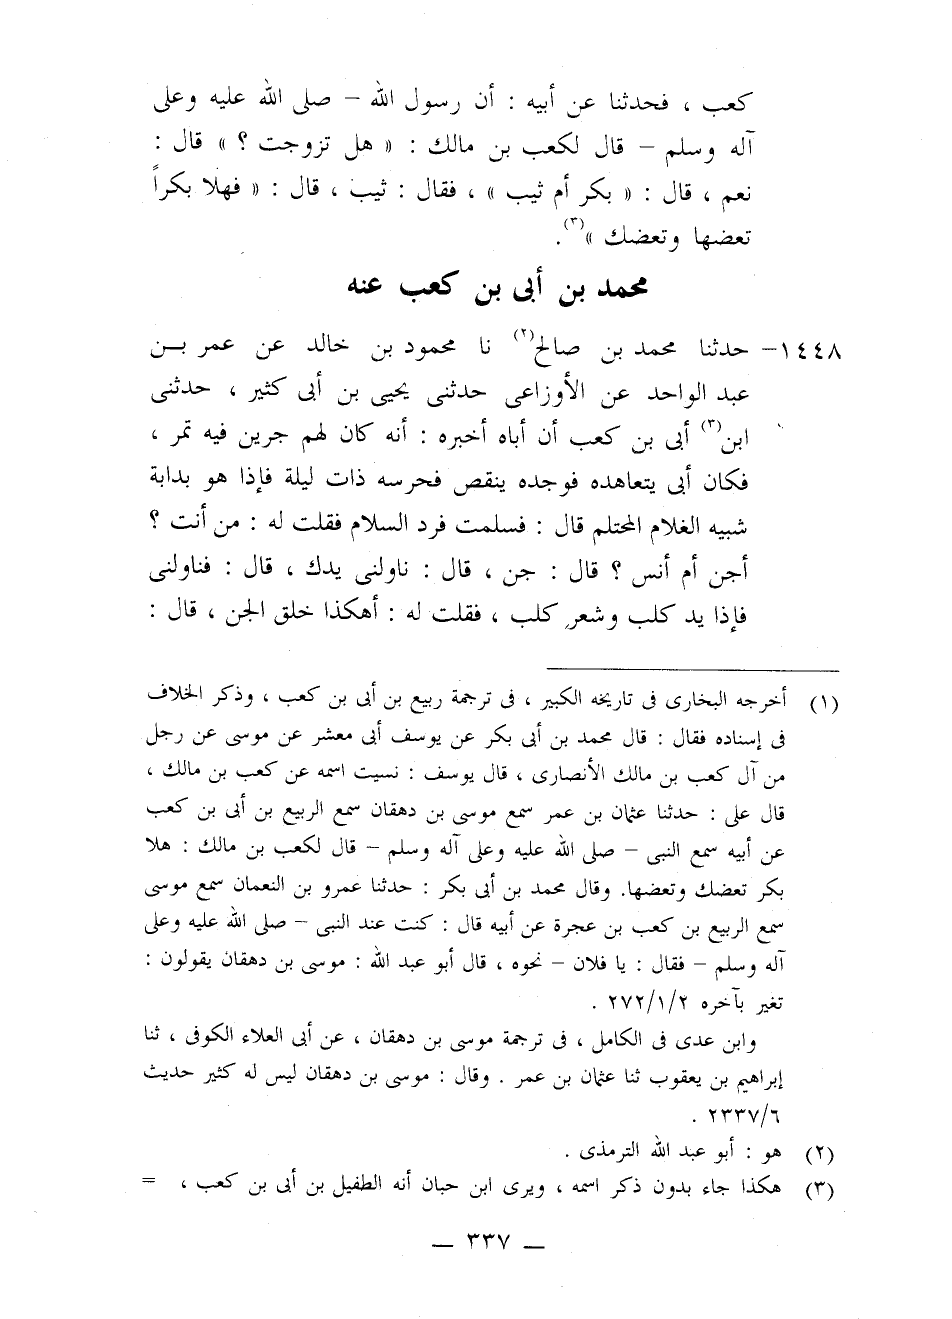 كعب ، فحدثنا عن أبيه : أن رسول الله – صلى الله عليه وعلى
آله وسلم – قال لكعب بن مالك : « هل تزوجت ؟ » قال :
نعم ، قال : « بكر أم ثيب » ، فقال : ثيب ، قال : « فهلا بكراً
تعضها وتعضك »(٣).
محمد بن أبى بن كعب عنه
١٤٤٨– حدثنا محمد بن صالح(٢) نا محمود بن خالد عن عمر بـن
عبد الواحد عن الأوزاعى حدثنى يحيى بن أبى كثير ، حدثنى
ابن(٣) أبى بن كعب أن أباه أخبره : أنه كان لهم جرين فيه تمر ،
فكان أبى يتعاهده فوجده ينقص فحرسه ذات ليلة فإذا هو بدابة
شبيه الغلام المحتلم قال : فسلمت فرد السلام فقلت له : من أنت ؟
أجن أم أنس ؟ قال : جن ، قال : ناولنى يدك ، قال : فناولنى
فإذا يد كلب وشعر كلب ، فقلت له : أهكذا خلق الجن ، قال :
(١) أخرجه البخارى فى تاريخه الكبير ، فى ترجمة ربيع بن أبى بن كعب ، وذكر الخلاف
فى إسناده فقال : قال محمد بن أبى بكر عن يوسف أبى معشر عن موسى عن رجل
من آل كعب بن مالك الأنصارى ، قال يوسف : نسيت اسمه عن كعب بن مالك ،
قال على : حدثنا عثمان بن عمر سمع موسى بن دهقان سمع الربيع بن أبى بن كعب
عن أبيه سمع النبى – صلى الله عليه وعلى آله وسلم – قال لكعب بن مالك : هلا
بكر تعضك وتعضها. وقال محمد بن أبى بكر : حدثنا عمرو بن النعمان سمع موسى
سمع الربيع بن كعب بن عجرة عن أبيه قال : كنت عند النبى – صلى الله عليه وعلى
آله وسلم – فقال : يا فلان – نحوه ، قال أبو عبد الله : موسى بن دهقان يقولون :
تغير بآخره ٢٧٢/١/٢ .
وابن عدى فى الكامل ، فى ترجمة موسى بن دهقان ، عن أبى العلاء الكوفى ، ثنا
إبراهيم بن يعقوب ثنا عثمان بن عمر . وقال : موسى بن دهقان ليس له كثير حديث
٢٣٣٧/٦ .
(٢) هو : أبو عبد الله الترمذى .
(٣) هكذا جاء بدون ذكر اسمه ، ويرى ابن حبان أنه الطفيل بن أبى بن كعب ، =
— ٣٣٧ —